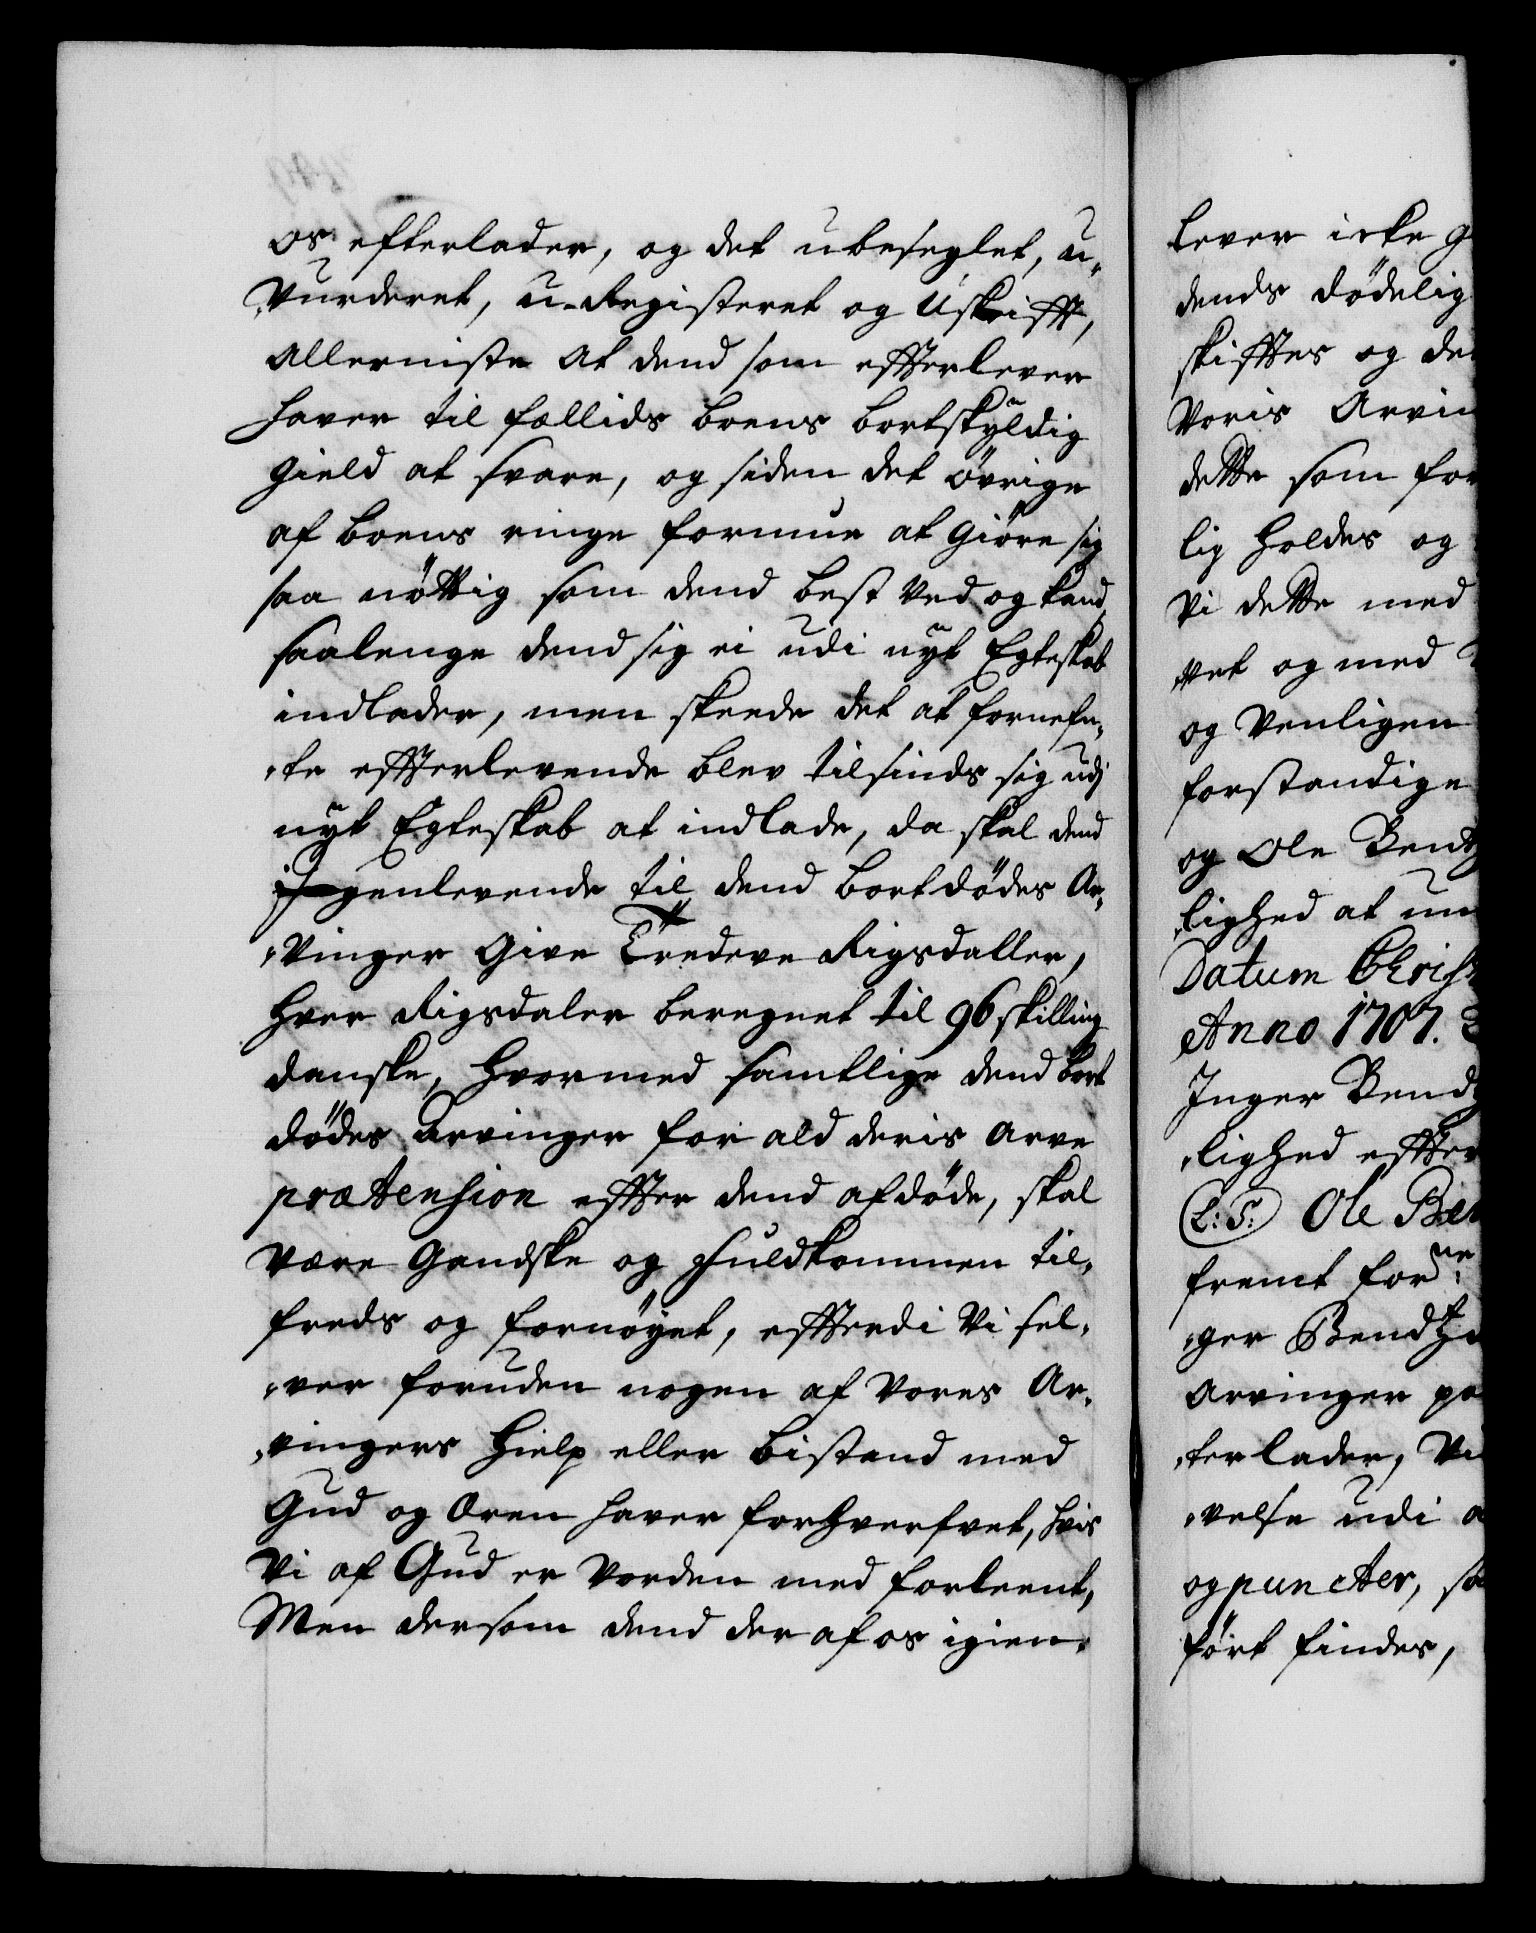 os efterlader, og det ubeseglet, u-
vurderet, u-Registeret og Uskifft,
allerniste at dend som effterlever
haver til fællids boens bortskyldig
gield at svare, og siden det övrige
af boens ringe formue at giöre sig
saa nöttig som dend best ved og kand,
saalenge dend sig ei udi nyt Egteskab
indlader, men skeede det at fornefn-
te effterlevende blev tilsinds sig udj
nyt Egteskab at indlade, da skal dend
igenlevende til dend bortdödes Ar-
vinger give Tredeve Rigsdaller,
hver Rigsdaler beregnet til 96 skilling
danske, hvormed samtlige dend bort
dödes arvinger for ald deris arve
prætension effter dend afdöde, skal
være gandske og fuldkommen til-
freds og fornöyet, effterdi vi sel-
ver foruden nogen af vores Ar-
vingers hielp eller bistand med
Gud og æren haver forhverfvet, hvis
vi af Gud er vorden med forleent,
Men dersom dend der af os igien-
lever icke g
dends dödelig
skifftes og de
voris Arvin
dette som for
lig holdes og
vi dette med
net og med
og venligen
forstandige
og Ole Bendt
lighed at un
Datum Christ
Anno 1707.
Inger Bendt
lighed effter
(L: S:) Ole Ben
fremt forne:
ger Bendtz
arvinger pa
terlader, Vi
velse udi a
og puncter, sa
fört findes,